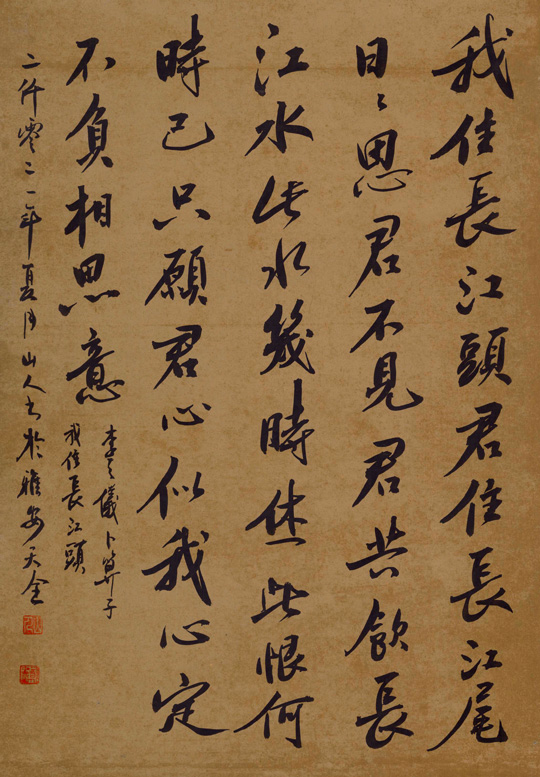 我住長江頭君住長江尾
日〻思君不見君共飲長
江水此水幾時休此恨何
時已只願君心似我心定
不負相思意
李之儀卜算子
我住長江頭
二仟零二一年夏月山人书於雅安天全